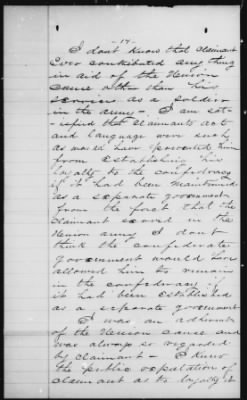 - 14 -
I don't know that claimant
ever contributed any thing
in aid of the Union
cause other than his
services as a soldier
in the army - I am sat-
isfied that claimants acts
and language were such
as would have prevented him
from establishing his
loyalty to the confederacy
if it had been maintained
as a separate government
from the fact that the
claimant served in the
Union army I don't
think the confederate
government would have
allowed him to remains
in the confederacy if
it had been established
as a separate government
I was an adherent
of the Union cause and
was always so regarded
by claimant - I knew
the public reputation of
claimant as to loyalty it